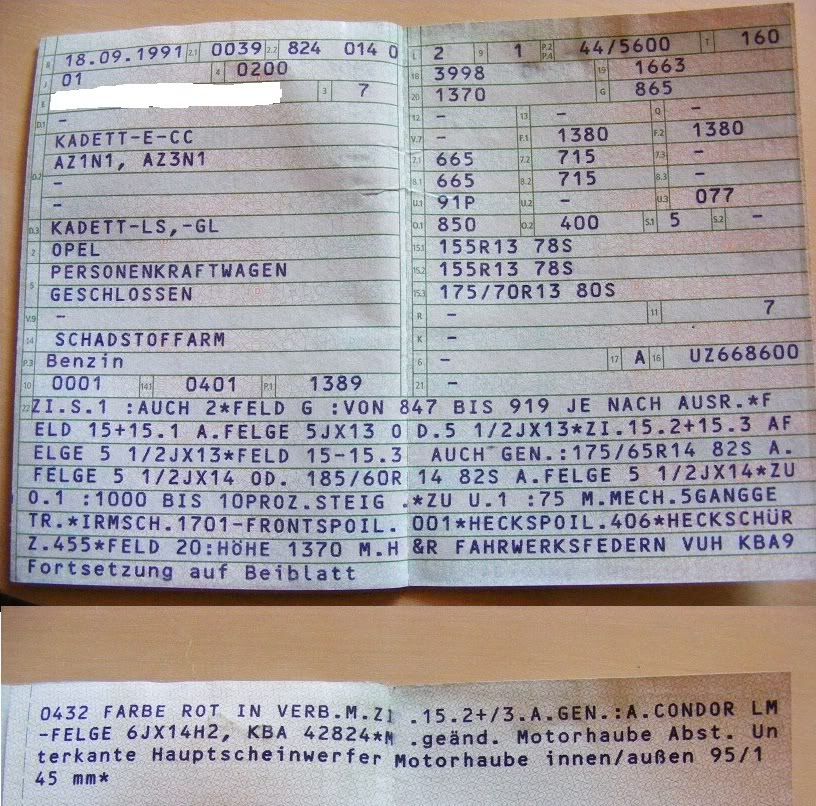 B 18.09.1991 2.1 0039 2.2 824 014 0
J 01 4 0200
E 3 7
D.1 -
KADETT-E-CC
D.2 AZ1N1, AZ3N1
-
-
D.3 KADETT-LS,-GL
2 OPEL
5 PERSONENKRAFTWAGEN
GESCHLOSSEN
V.9 -
14 SCHADSTOFFARM
P.3 Benzin
10 0001 14.1 0401 P.1 1389
L 2 9 1 P.2 P.4 44/5600 T 160
18 3998 19 1663
20 1370 G 865
12 - 13 - Q -
V.7 - F.1 1380 F.2 1380
7.1 665 7.2 715 7.3 -
8.1 665 8.2 715 8.3 -
U.1 91P U.2 - U.3 077
O.1 850 O.2 400 S.1 5 S.2 -
15.1 155R13 78S
15.2 155R13 78S
15.3 175/70R13 80S
R - 11 7
K -
6 - 17 A 16 UZ668600
21 -
22 ZI.S.1 :AUCH 2*FELD G :VON 847 BIS 919 JE NACH AUSR.*F
ELD 15+15.1 A.FELGE 5JX13 O D.5 1/2JX13*ZI.15.2+15.3 AF
ELGE 5 1/2JX13*FELD 15-15.3 AUCH GEN.:175/65R14 82S A.
FELGE 5 1/2JX14 OD. 185/60R 14 82S A.FELGE 5 1/2JX14*ZU
O.1 :1000 BIS 10PROZ.STEIG .*ZU U.1 :75 M.MECH.5GANGGE
TR.*IRMSCH.1701-FRONTSPOIL. 001*HECKSPOIL.406*HECKSCHÜR
Z.455*FELD 20:HÖHE 1370 M.H &R FAHRWERKSFEDERN VUH KBA9
Fortsetzung auf Beiblatt
0432 FARBE ROT IN VERB.M.ZI .15.2+/3.A.GEN.:A.CONDOR LM
-FELGE 6JX14H2, KBA 42824*M .geänd. Motorhaube Abst. Un
terkante Hauptscheinwerfer Motorhaube innen/außen 95/1
45 mm*